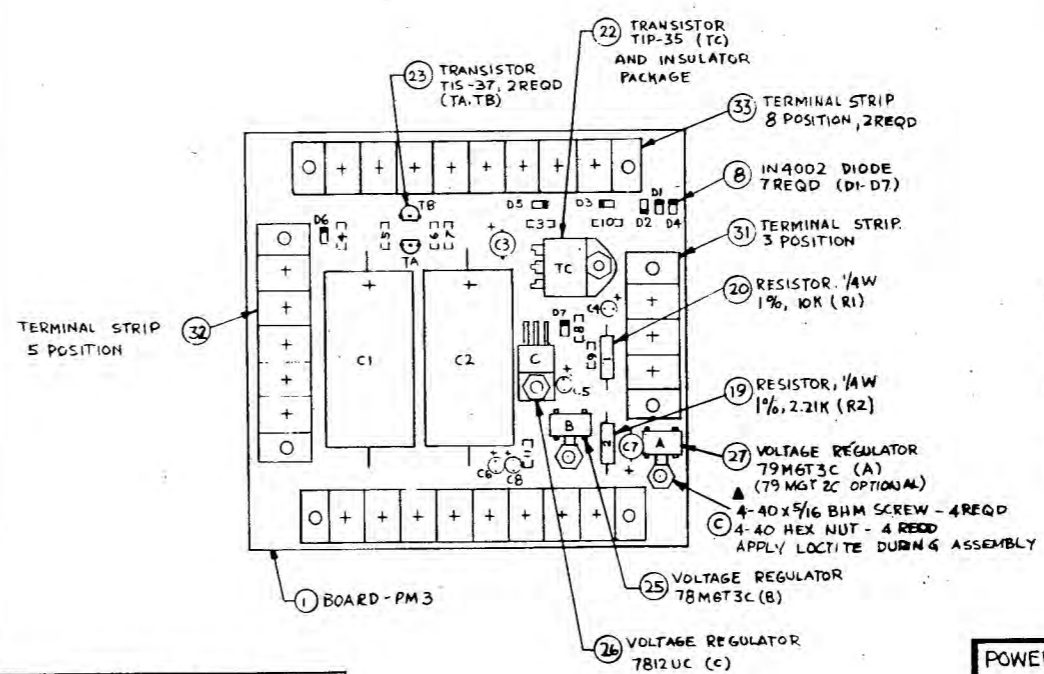 22 TRANSISTOR
TIP-35 (TC)
AND INSULATOR
PACKAGE
23 TRANSISTOR
TIS-37, 2REQD
(TA,TB)
33 TERMINAL STRIP
8 POSITION, 2REQD
8 IN4002 DIODE
7REQD (D1-D7)
31 TERMINAL STRIP.
3 POSITION
20 RESISTOR. 1/4W
1%, 10K (R1)
19 RESISTOR, 1/4W
1%, 2.21K (R2)
27 VOLTAGE REGULATOR
79MGT3C (A)
(79 MGT 2C OPTIONAL)
C 4-40 x 5/16 BHM SCREW - 4REQD
4-40 HEX NUT - 4 REQD
APPLY LOCTITE DURING ASSEMBLY
25 VOLTAGE REGULATOR
78MGT3C (B)
26 VOLTAGE REGULATOR
7812UC (C)
1 BOARD-PM3
TERMINAL STRIP 32
5 POSITION
D5 D3 D1
C3 C10 D2 D4
D6 C4 C5 TB C6 C7 C3
TA
TC
C4
D7 C8 C9 1
C1 C2 C C5
B 2 C7 A
C6 C8 C11
POWER